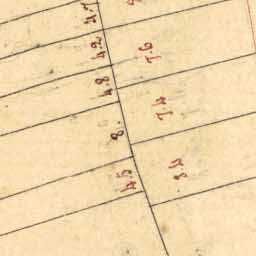 4.7
4.2
7.6
4.8
7.4
8.
4.5
8.4